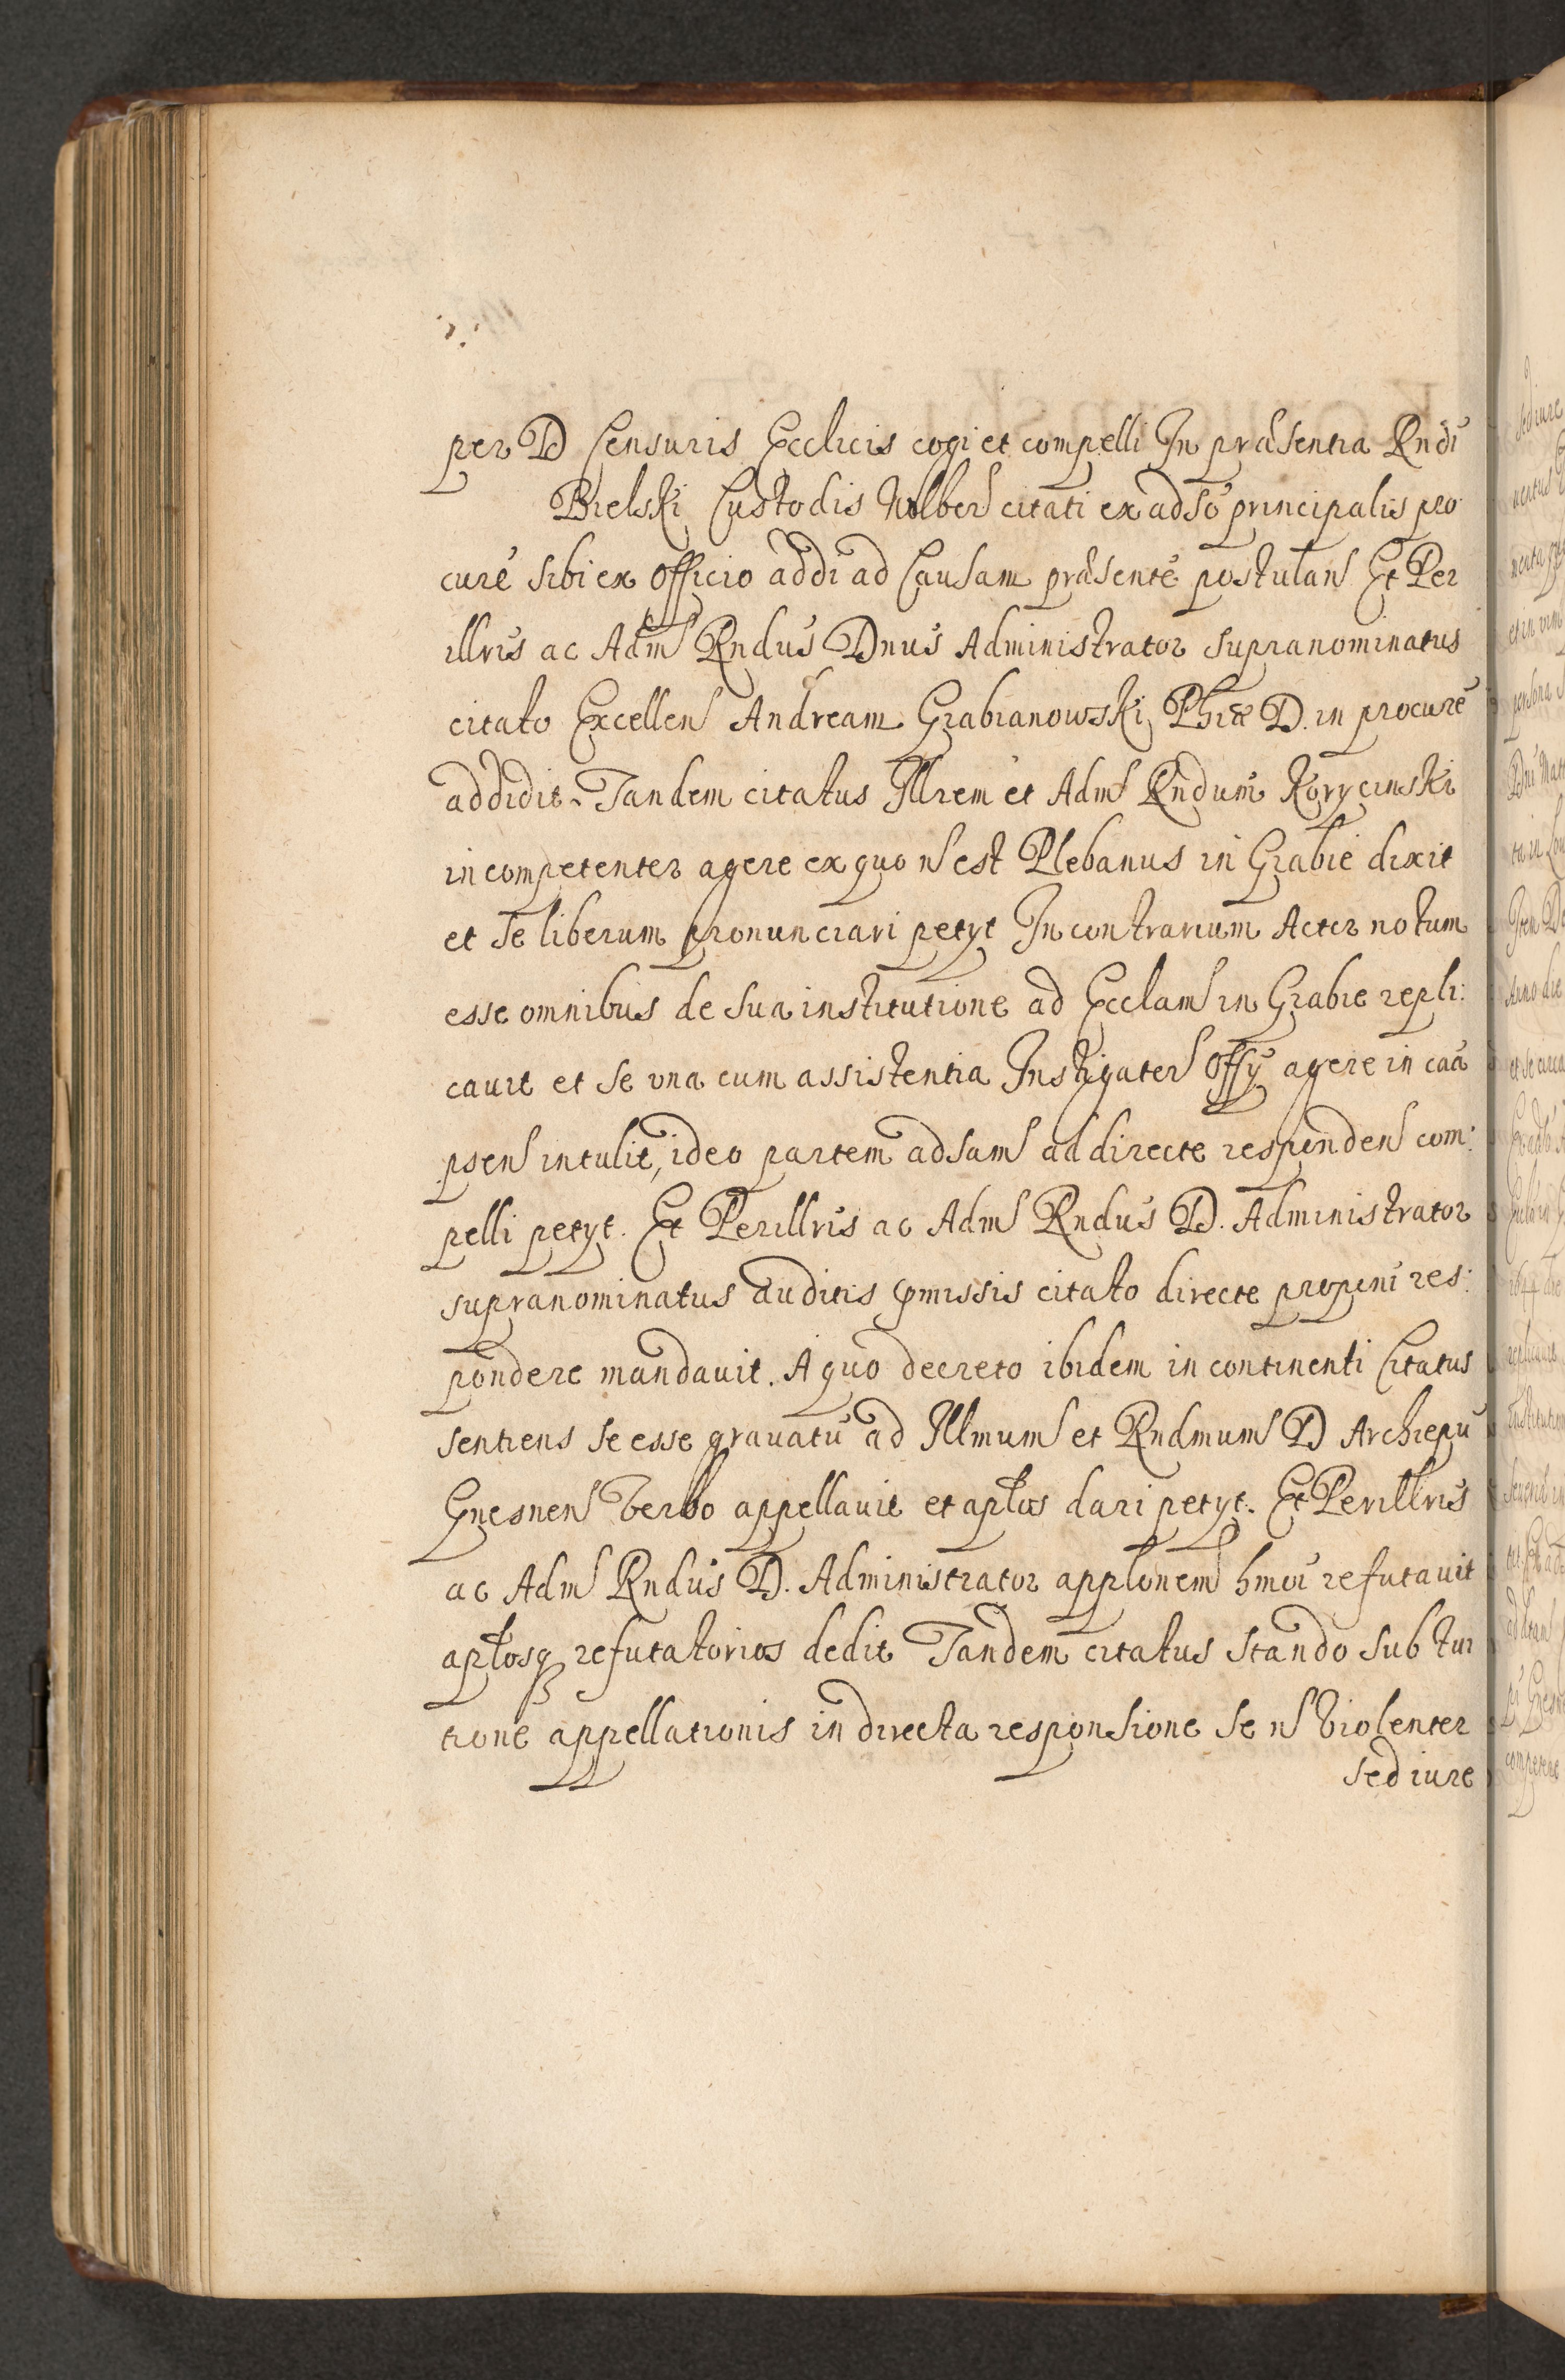 per D Censuris Ecclicis cogi et compelli In præsentia Rndi
Bielski Custodis Wolbor citati ex adso principalis pro
cure sibi ex officio addi ad Causam præsente postulan Et Per
illris ac Adm Rndus Dnus Administrator supranominatus
citato Excellen Andream Grabianowski Phiæ D. in procure
addidit. Tandem citatus Illrem et Adm Rndum Korycinski
incompetenter agere ex quo n est Plebanus in Grabie dixit
et se liberum pronunciari petyt In contrarium Actor notum
esse omnibus de sua institutione ad Ecclam in Grabie repli:
cavit et se vna cum assistentia Instigator Offy agere in caa
psen intulit, ideo partem adsam ad directe responden com:
pelli petyt. Et Perillris ac Adm Rndus D. Administrator
supranominatus auditis pmissis citato directe proponi res:
pondere mandavit. A quo decreto ibidem in continenti Citatus
sentiens se esse gravatu ad Illmum et Rndmum D Archiepu
Gnesnen verbo appellavit et aplos dari petyt. Et Perillris
ac Adm Rndus D. Administrator applonem hmoi refutavit
aplosq refutatorios dedit Tandem citatus stando sub tui
tione appellationis in directa responsione se n violenter
sed iure